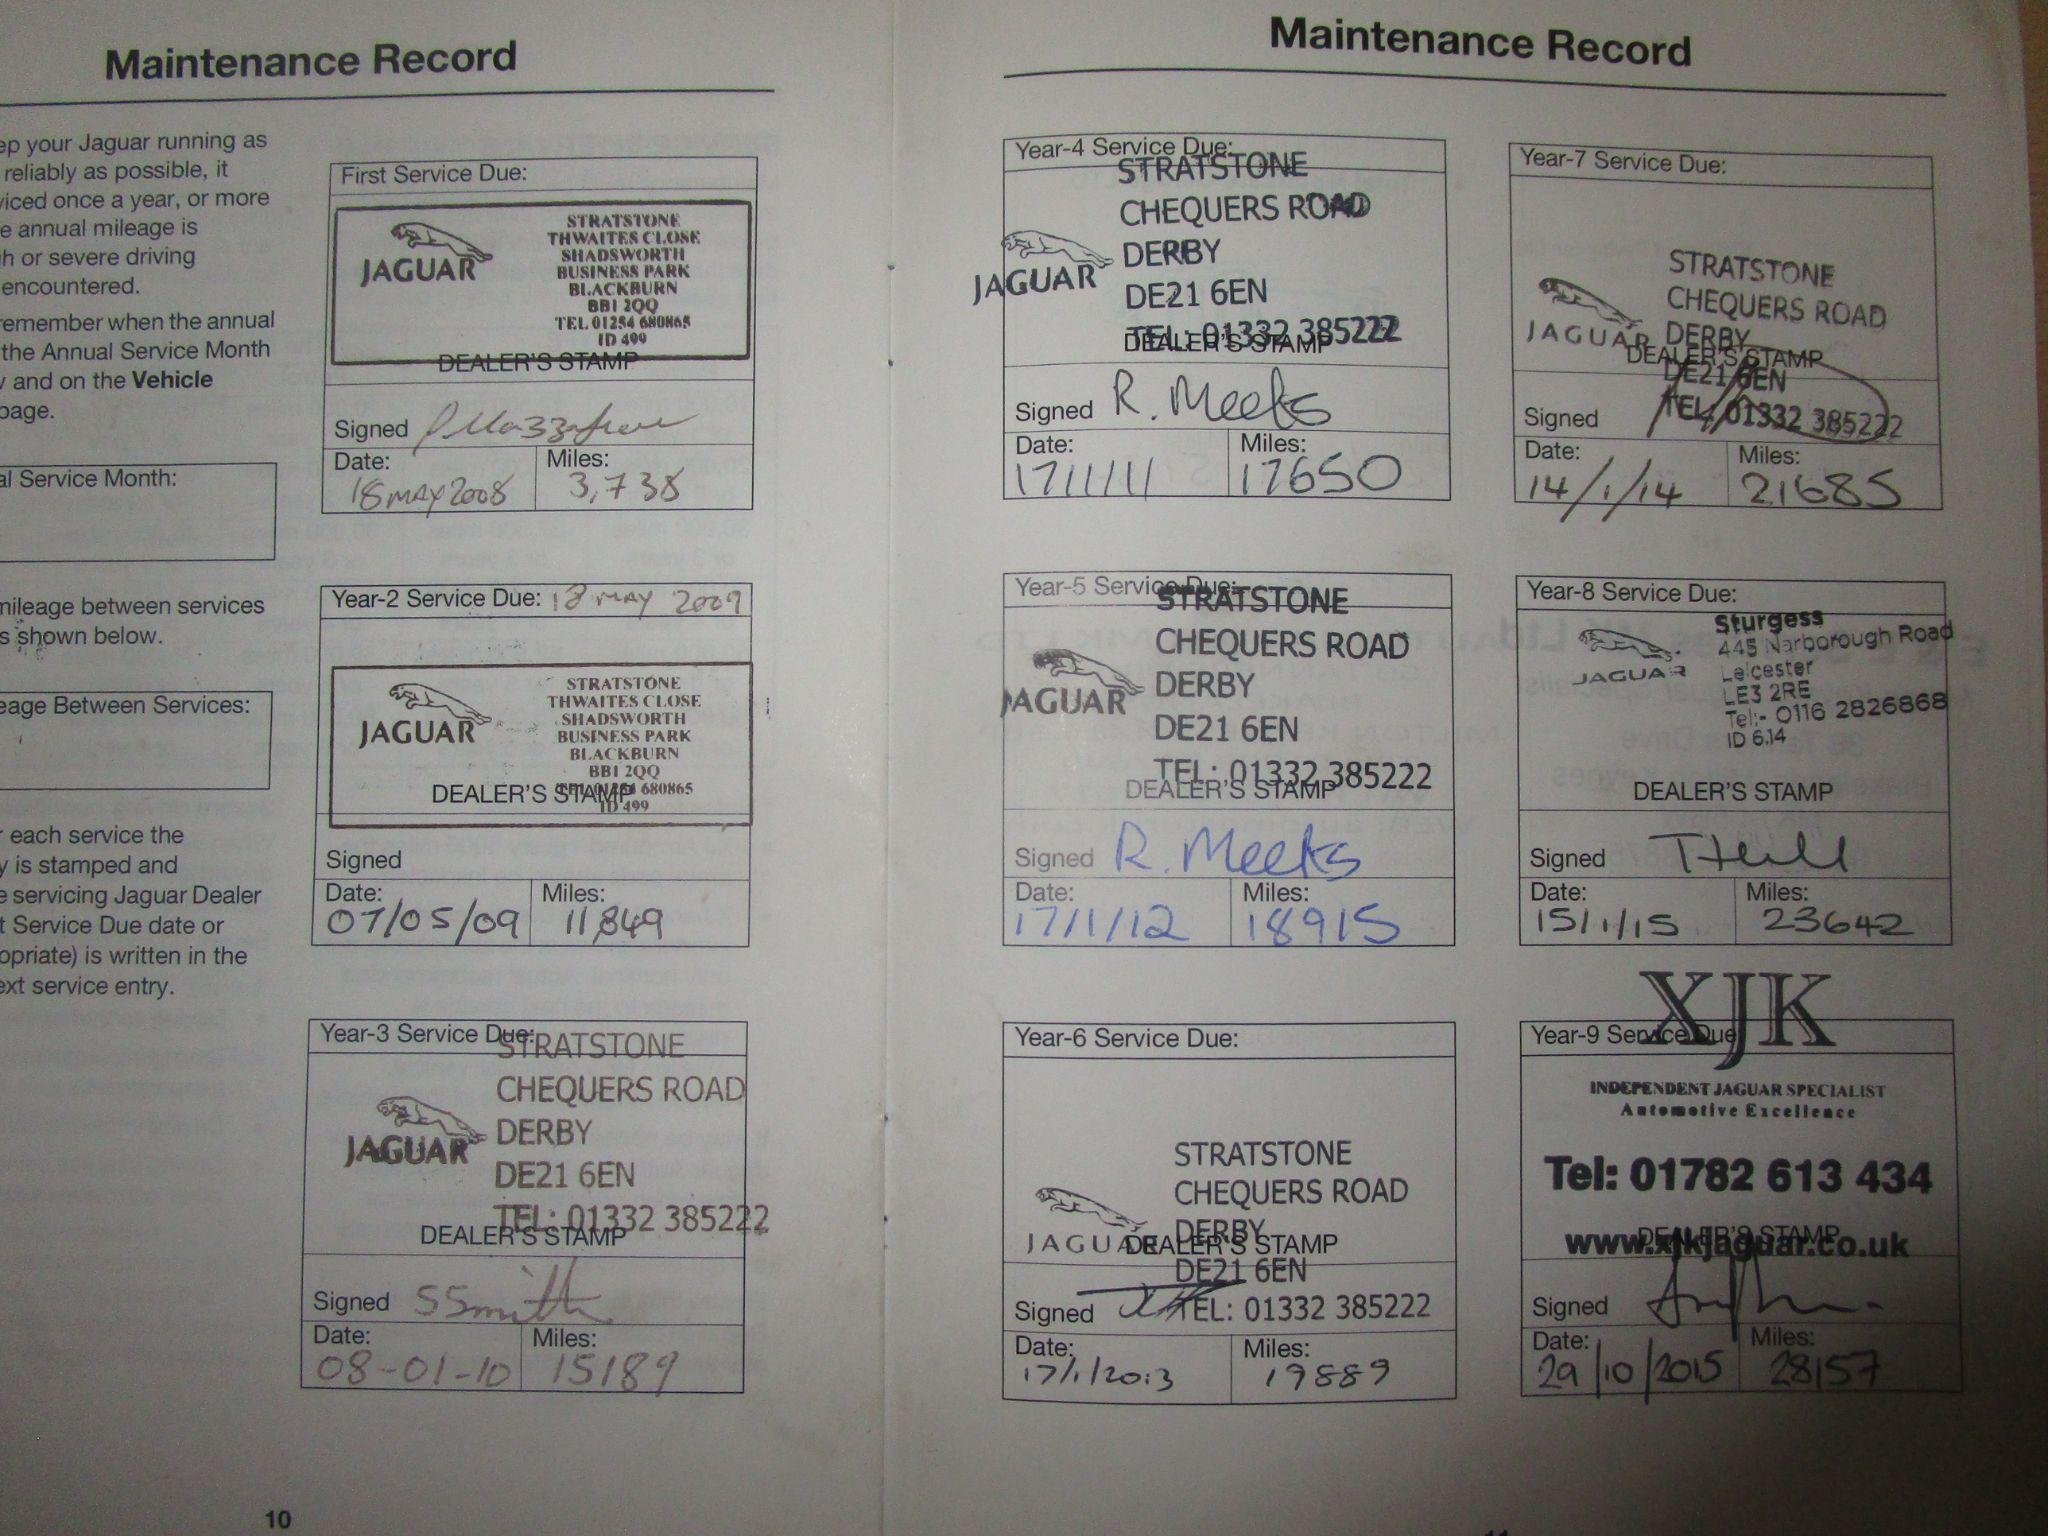 Maintenance Record
ep your Jaguar running as
reliably as possible, it
viced once a year, or more
e annual mileage is
h or severe driving
encountered.
remember when the annual
the Annual Service Month
and on the Vehicle
page.
al Service Month:
mileage between services
s shown below.
eage Between Services:
r each service the
y is stamped and
e servicing Jaguar Dealer
t Service Due date or
opriate) is written in the
ext service entry.
First Service Due:
JAGUAR
STRATSTONE
THWAITES CLOSE
SHADSWORTH
BUSINESS PARK
BLACKBURN
BB1 2QQ
TEL 01254 680865
ID 499
DEALER'S STAMP
Signed
Date: Miles:
18 MAY 2008 3,738
Year-2 Service Due: 18 MAY 2009
JAGUAR
STRATSTONE
THWAITES CLOSE
SHADSWORTH
BUSINESS PARK
BLACKBURN
BB1 2QQ
TEL 01254 680865
ID 499
DEALER'S STAMP
Signed
Date: Miles:
07/05/09 11,849
Year-3 Service Due:
JAGUAR
STRATSTONE
CHEQUERS ROAD
DERBY
DE21 6EN
TEL: 01332 385222
DEALER'S STAMP
Signed SSmith
Date: Miles:
08-01-10 15189
10
Maintenance Record
Year-4 Service Due:
JAGUAR
STRATSTONE
CHEQUERS ROAD
DERBY
DE21 6EN
TEL: 01332 385222
DEALER'S STAMP
Signed R. Meeks
Date: Miles:
17/1/11 17650
Year-5 Service Due:
JAGUAR
STRATSTONE
CHEQUERS ROAD
DERBY
DE21 6EN
TEL: 01332 385222
DEALER'S STAMP
Signed R. Meeks
Date: Miles:
17/1/12 18915
Year-6 Service Due:
JAGUAR
STRATSTONE
CHEQUERS ROAD
DERBY
DE21 6EN
TEL: 01332 385222
DEALER'S STAMP
Signed
Date: Miles:
17/1/2013 19889
Year-7 Service Due:
JAGUAR
STRATSTONE
CHEQUERS ROAD
DERBY
DE21 6EN
TEL: 01332 385222
DEALER'S STAMP
Signed
Date: Miles:
14/1/14 21685
Year-8 Service Due:
JAGUAR
Sturgess
445 Narborough Road
Leicester
LE3 2RE
Tel:- 0116 2826868
ID 614
DEALER'S STAMP
Signed T Hull
Date: Miles:
15/1/15 23642
Year-9 Service Due:
XJK
INDEPENDENT JAGUAR SPECIALIST
Automotive Excellence
Tel: 01782 613 434
www.xjkjaguar.co.uk
DEALER'S STAMP
Signed
Date: Miles:
29/10/2015 28157